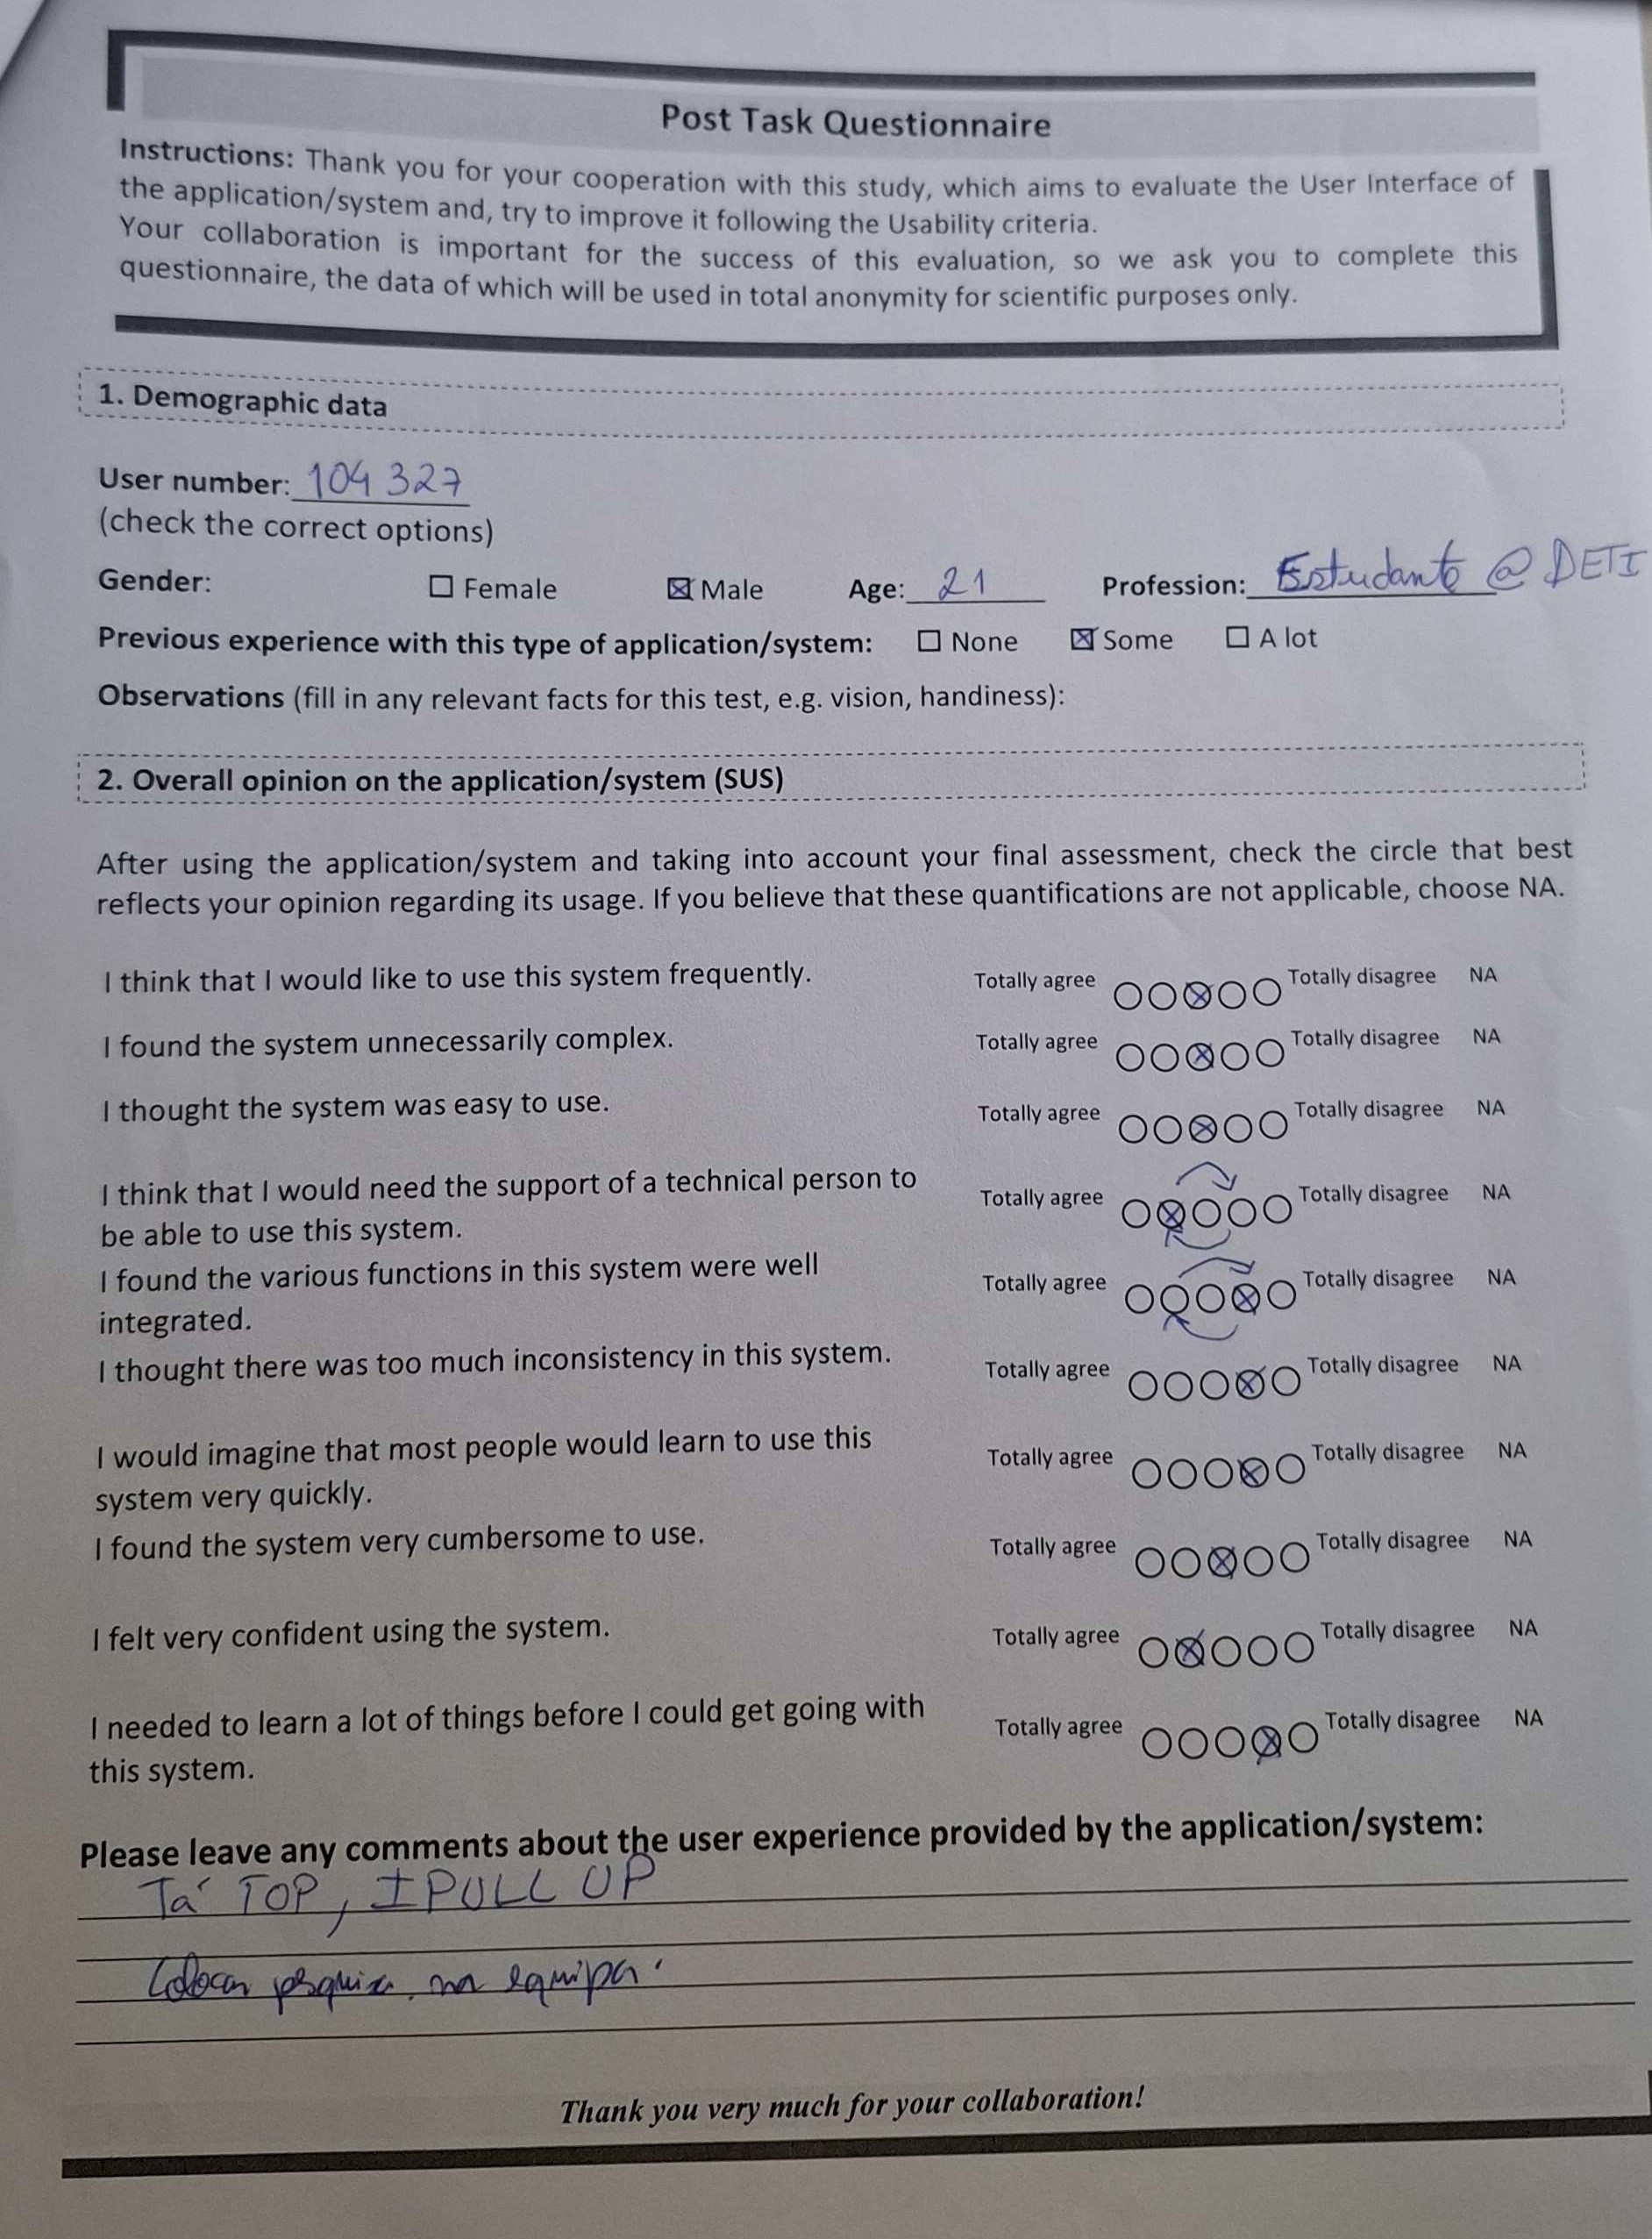 Post Task Questionnaire
Instructions: Thank you for your cooperation with this study, which aims to evaluate the User Interface of
the application/system and, try to improve it following the Usability criteria.
Your collaboration is important for the success of this evaluation, so we ask you to complete this
questionnaire, the data of which will be used in total anonymity for scientific purposes only.
1. Demographic data
User number: 104 327
(check the correct options)
Gender: ☐ Female ☒ Male Age: 21 Profession: Estudante @ DETI
Previous experience with this type of application/system: ☐ None ☒ Some ☐ A lot
Observations (fill in any relevant facts for this test, e.g. vision, handiness):
2. Overall opinion on the application/system (SUS)
After using the application/system and taking into account your final assessment, check the circle that best
reflects your opinion regarding its usage. If you believe that these quantifications are not applicable, choose NA.
I think that I would like to use this system frequently. Totally agree Totally disagree NA
I found the system unnecessarily complex. Totally agree Totally disagree NA
I thought the system was easy to use. Totally agree Totally disagree NA
I think that I would need the support of a technical person to Totally agree Totally disagree NA
be able to use this system.
I found the various functions in this system were well Totally agree Totally disagree NA
integrated.
I thought there was too much inconsistency in this system. Totally agree Totally disagree NA
I would imagine that most people would learn to use this Totally agree Totally disagree NA
system very quickly.
I found the system very cumbersome to use. Totally agree Totally disagree NA
I felt very confident using the system. Totally agree Totally disagree NA
I needed to learn a lot of things before I could get going with Totally agree Totally disagree NA
this system.
Please leave any comments about the user experience provided by the application/system:
Tá TOP, I PULL UP
Colocar pesquisa na equipa.
Thank you very much for your collaboration!